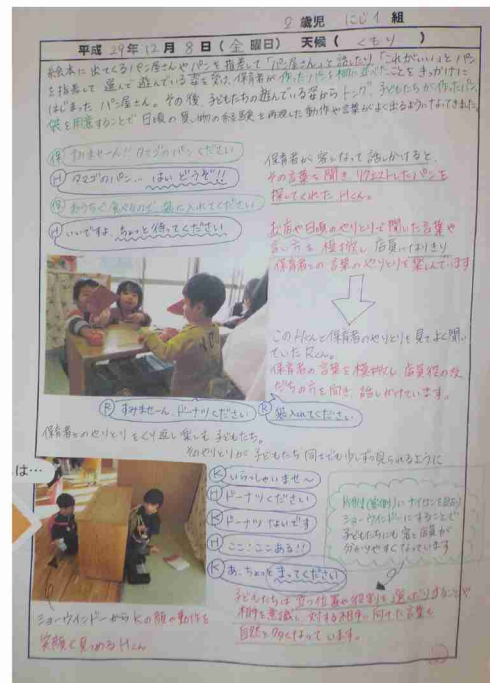 2歳児 にじ1組
平成29年12月8日(金曜日) 天候(くもり)
絵本に出てくるパン屋さんやパンを指差して「パン屋さん」と話したり「これがいい」とパン
を指差して選んで遊んでいる姿を受け、保育者が作ったパンを棚に並べたことをきっかけに
はじまったパン屋さん。その後、子どもたちの遊んでいる姿からトング、子どもたちが作ったパン、
袋を用意することで日頃の買い物の経験を再現した動作や言葉がよく出るようになってきました。
保 すみません!!タマゴのパンください
H タマゴのパン… はいどうぞ!!
保 おうちで食べるので、袋に入れてください
H いいですよ、ちょっと待ってください
保育者が客になって話しかけると、
その言葉を聞き、リクエストしたパンを
探してくれたHくん。
お店や日頃のやりとりで聞いた言葉や
言い方を模擬し、店員になりきり
保育者との言葉のやりとりを楽しんでいます
このHくんと保育者のやりとりを見てよく聞い
ていたRくん。
保育者の言葉を模擬し、店員役の友
だちの方を向き、話しかけています。
R すみませーん、ドーナツください
R 袋入れてください
保育者とのやりとりをくり返し楽しむ子どもたち。
そのやりとりが子どもたち同士でも少しずつ見られるように
は…
K いらっしゃいませ〜
H ドーナツください
K ドーナツないです
H ここ!ここある!!
K あ、ちょっとまってください
ショーウインドーにすることで
子どもたちにも客と店員が
分かりやすくなっています
ショーウインドーからKの顔や動作を
笑顔で見つめるHくん
子どもたちは立つ位置や役割を選んだりすることや
相手を意識し、対する相手に向けた言葉も
自然と多くなっています。